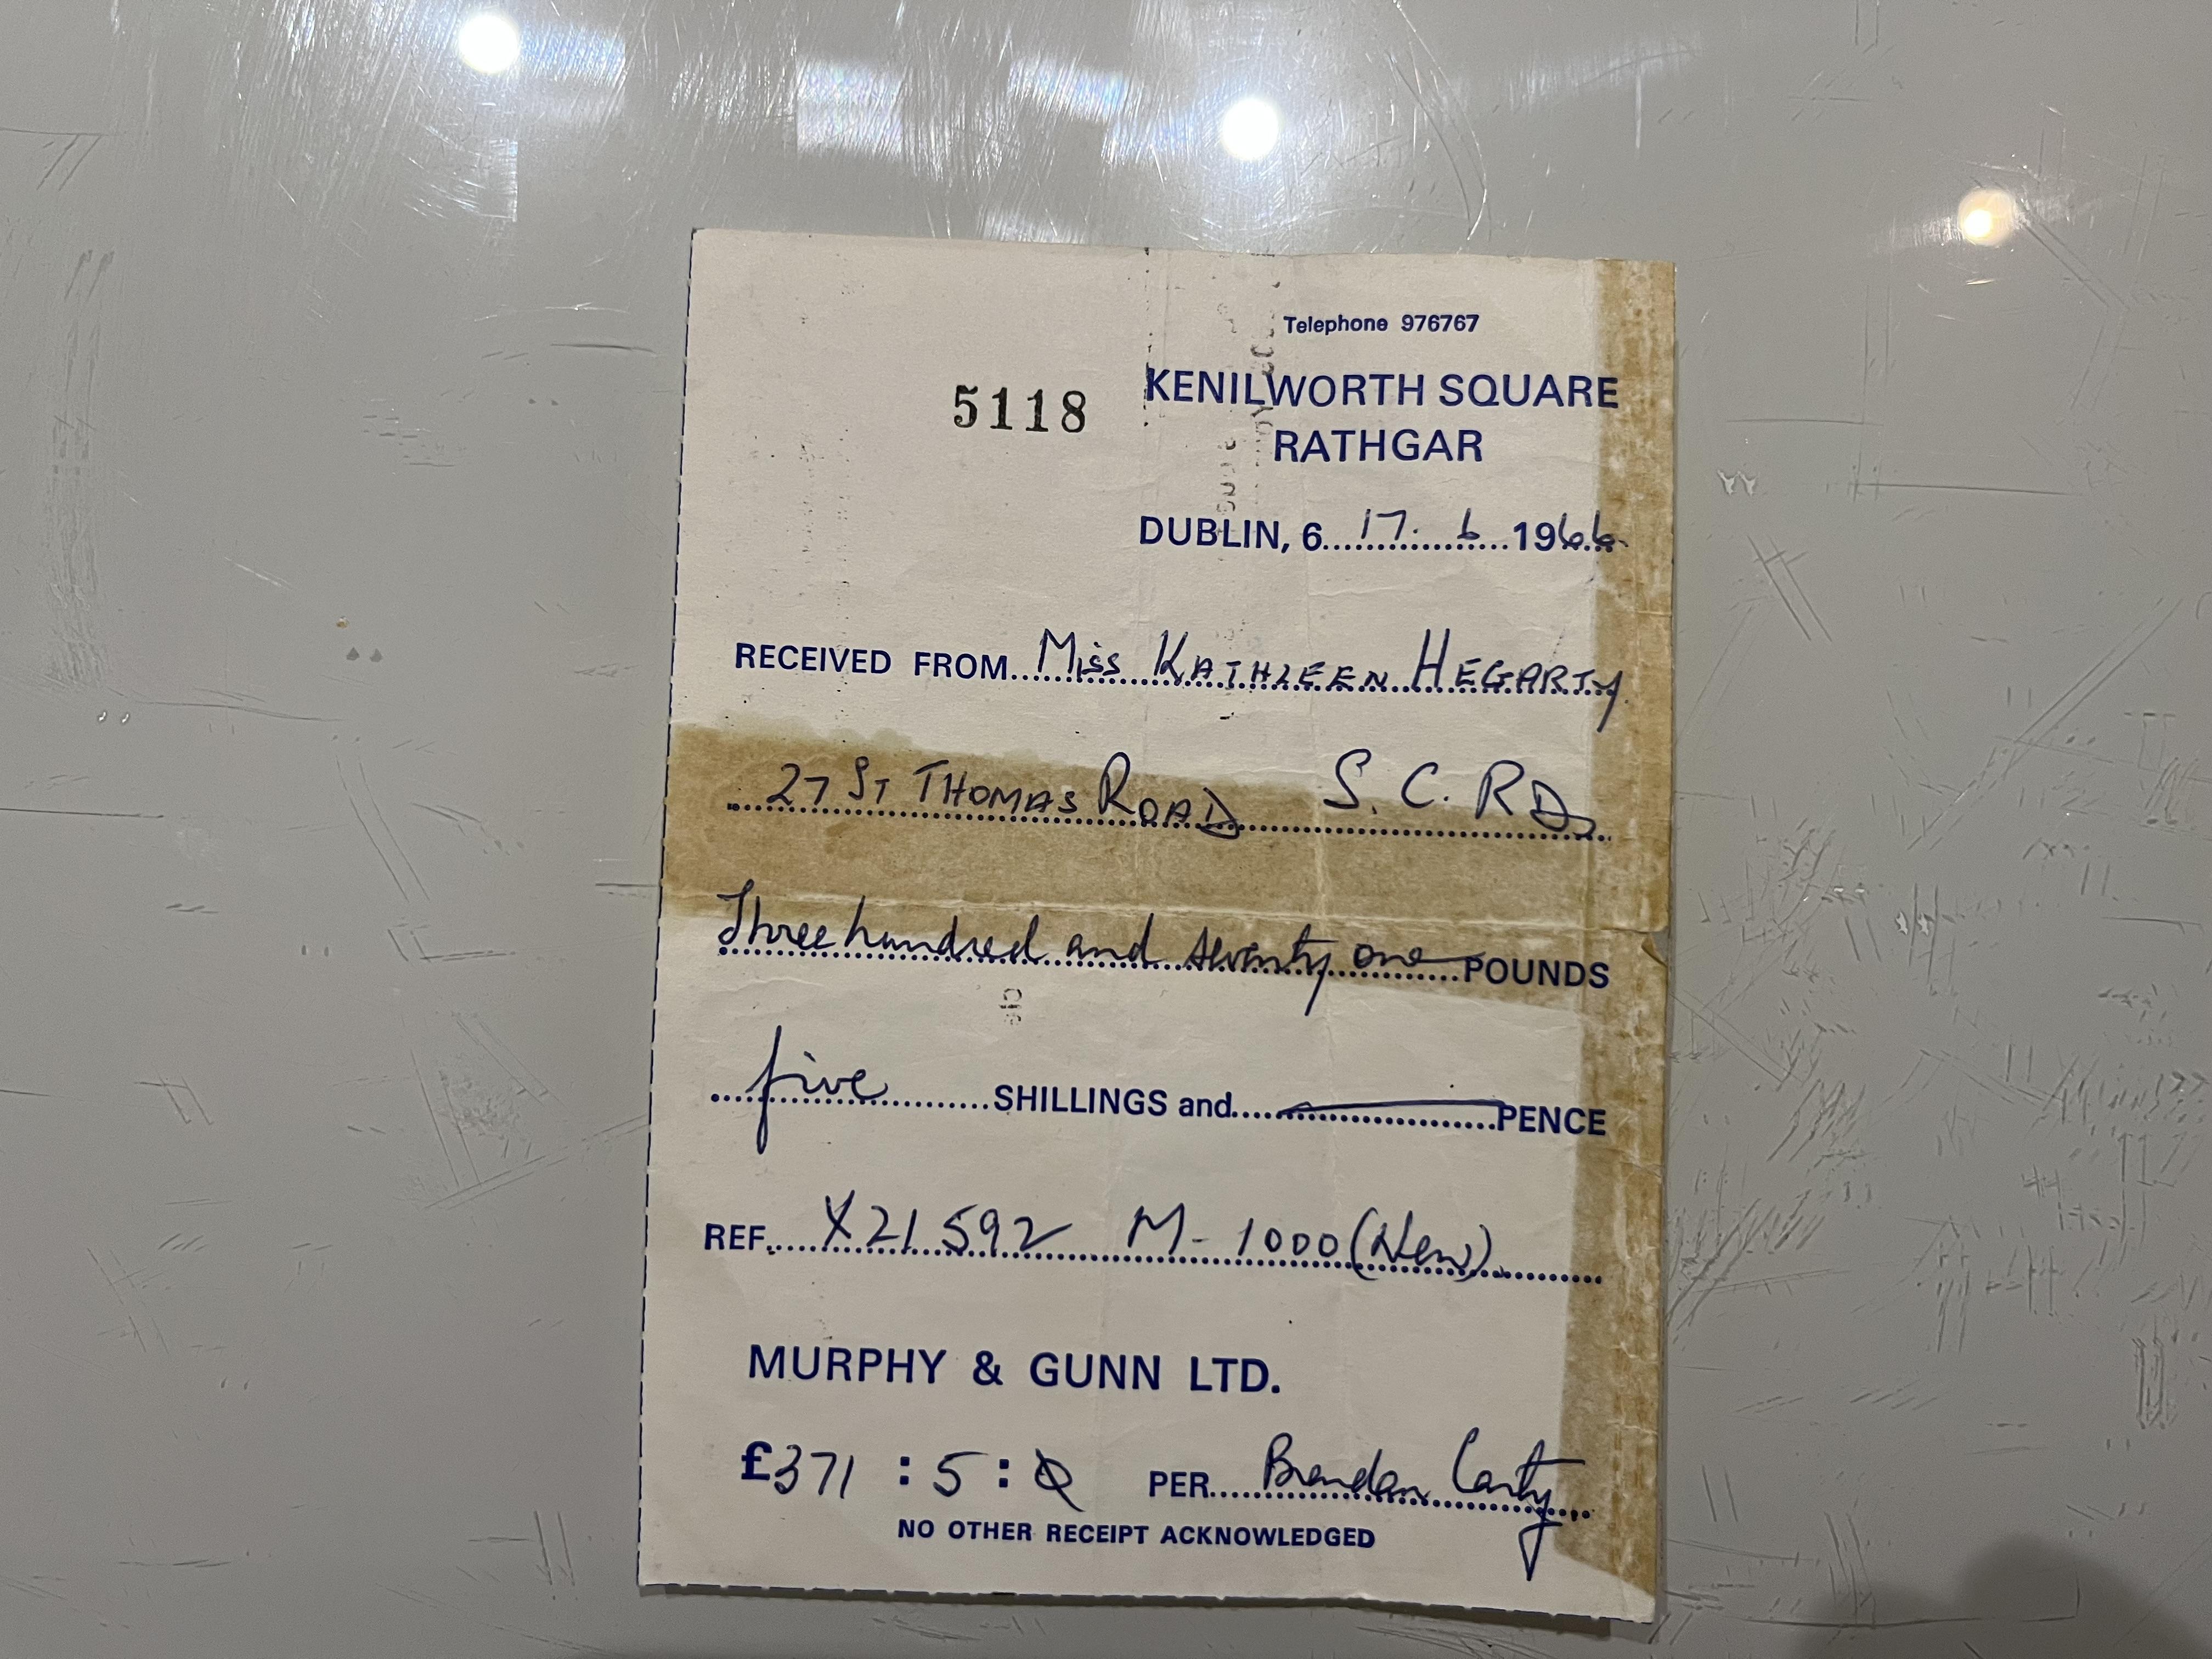 Telephone 976767
5118 KENILWORTH SQUARE
RATHGAR
DUBLIN, 6 17. 6 1966.
RECEIVED FROM Miss KATHLEEN HEGARTY.
27 ST THOMAS ROAD S. C. RD,
Three hundred and seventy one POUNDS
five SHILLINGS and — PENCE
REF. X21592 M-1000 (New).
MURPHY & GUNN LTD.
£371 : 5 : 0 PER Brendan Carty
NO OTHER RECEIPT ACKNOWLEDGED